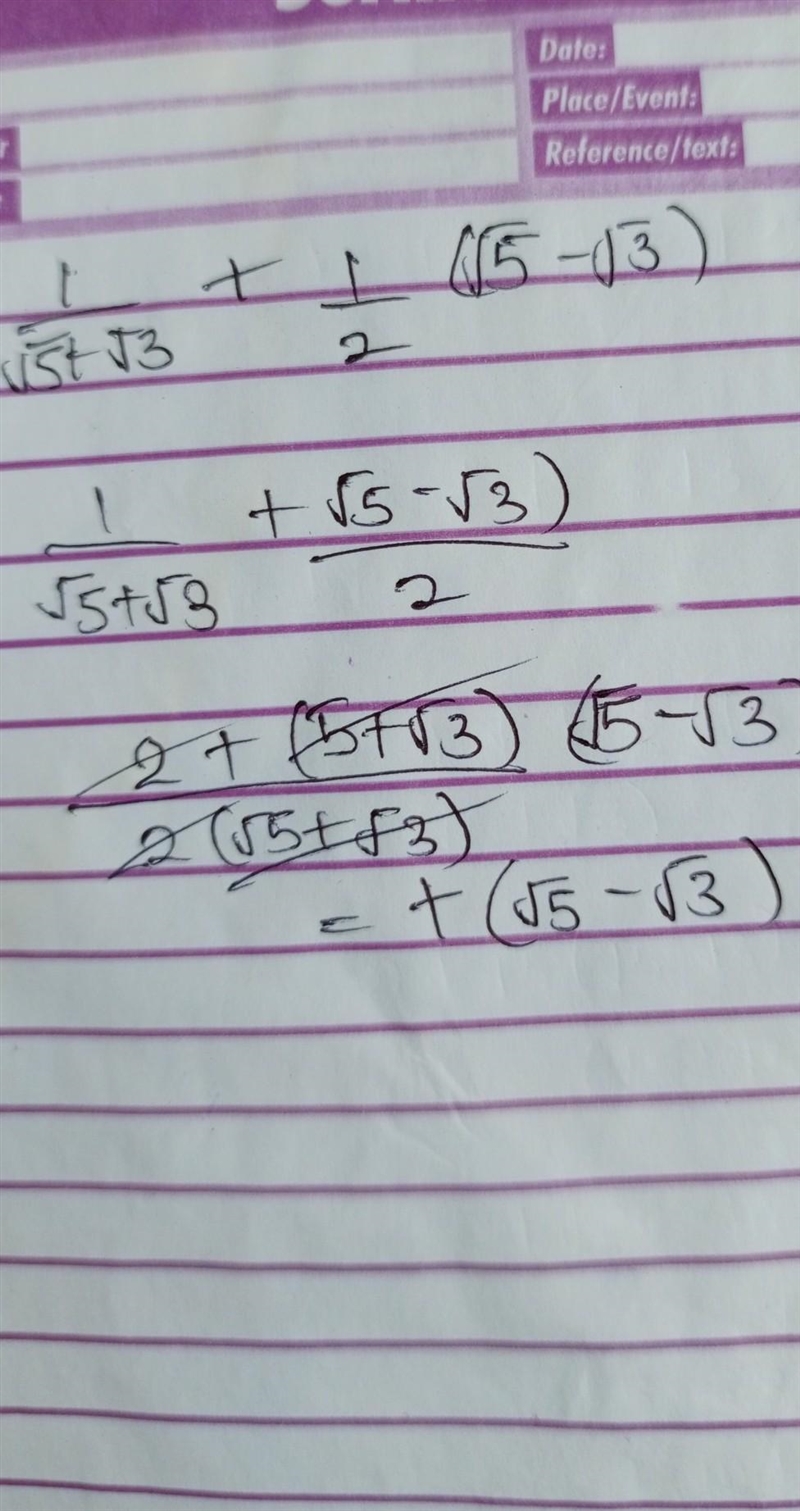 Date:
Place/Event:
Reference/text:
1/(√5+√3) + 1/2 (√5 - √3)
1/(√5+√3) + √5 - √3)/2
2 + (5+√3) (√5 - √3 / 2(√5+√3)
= + (√5 - √3)